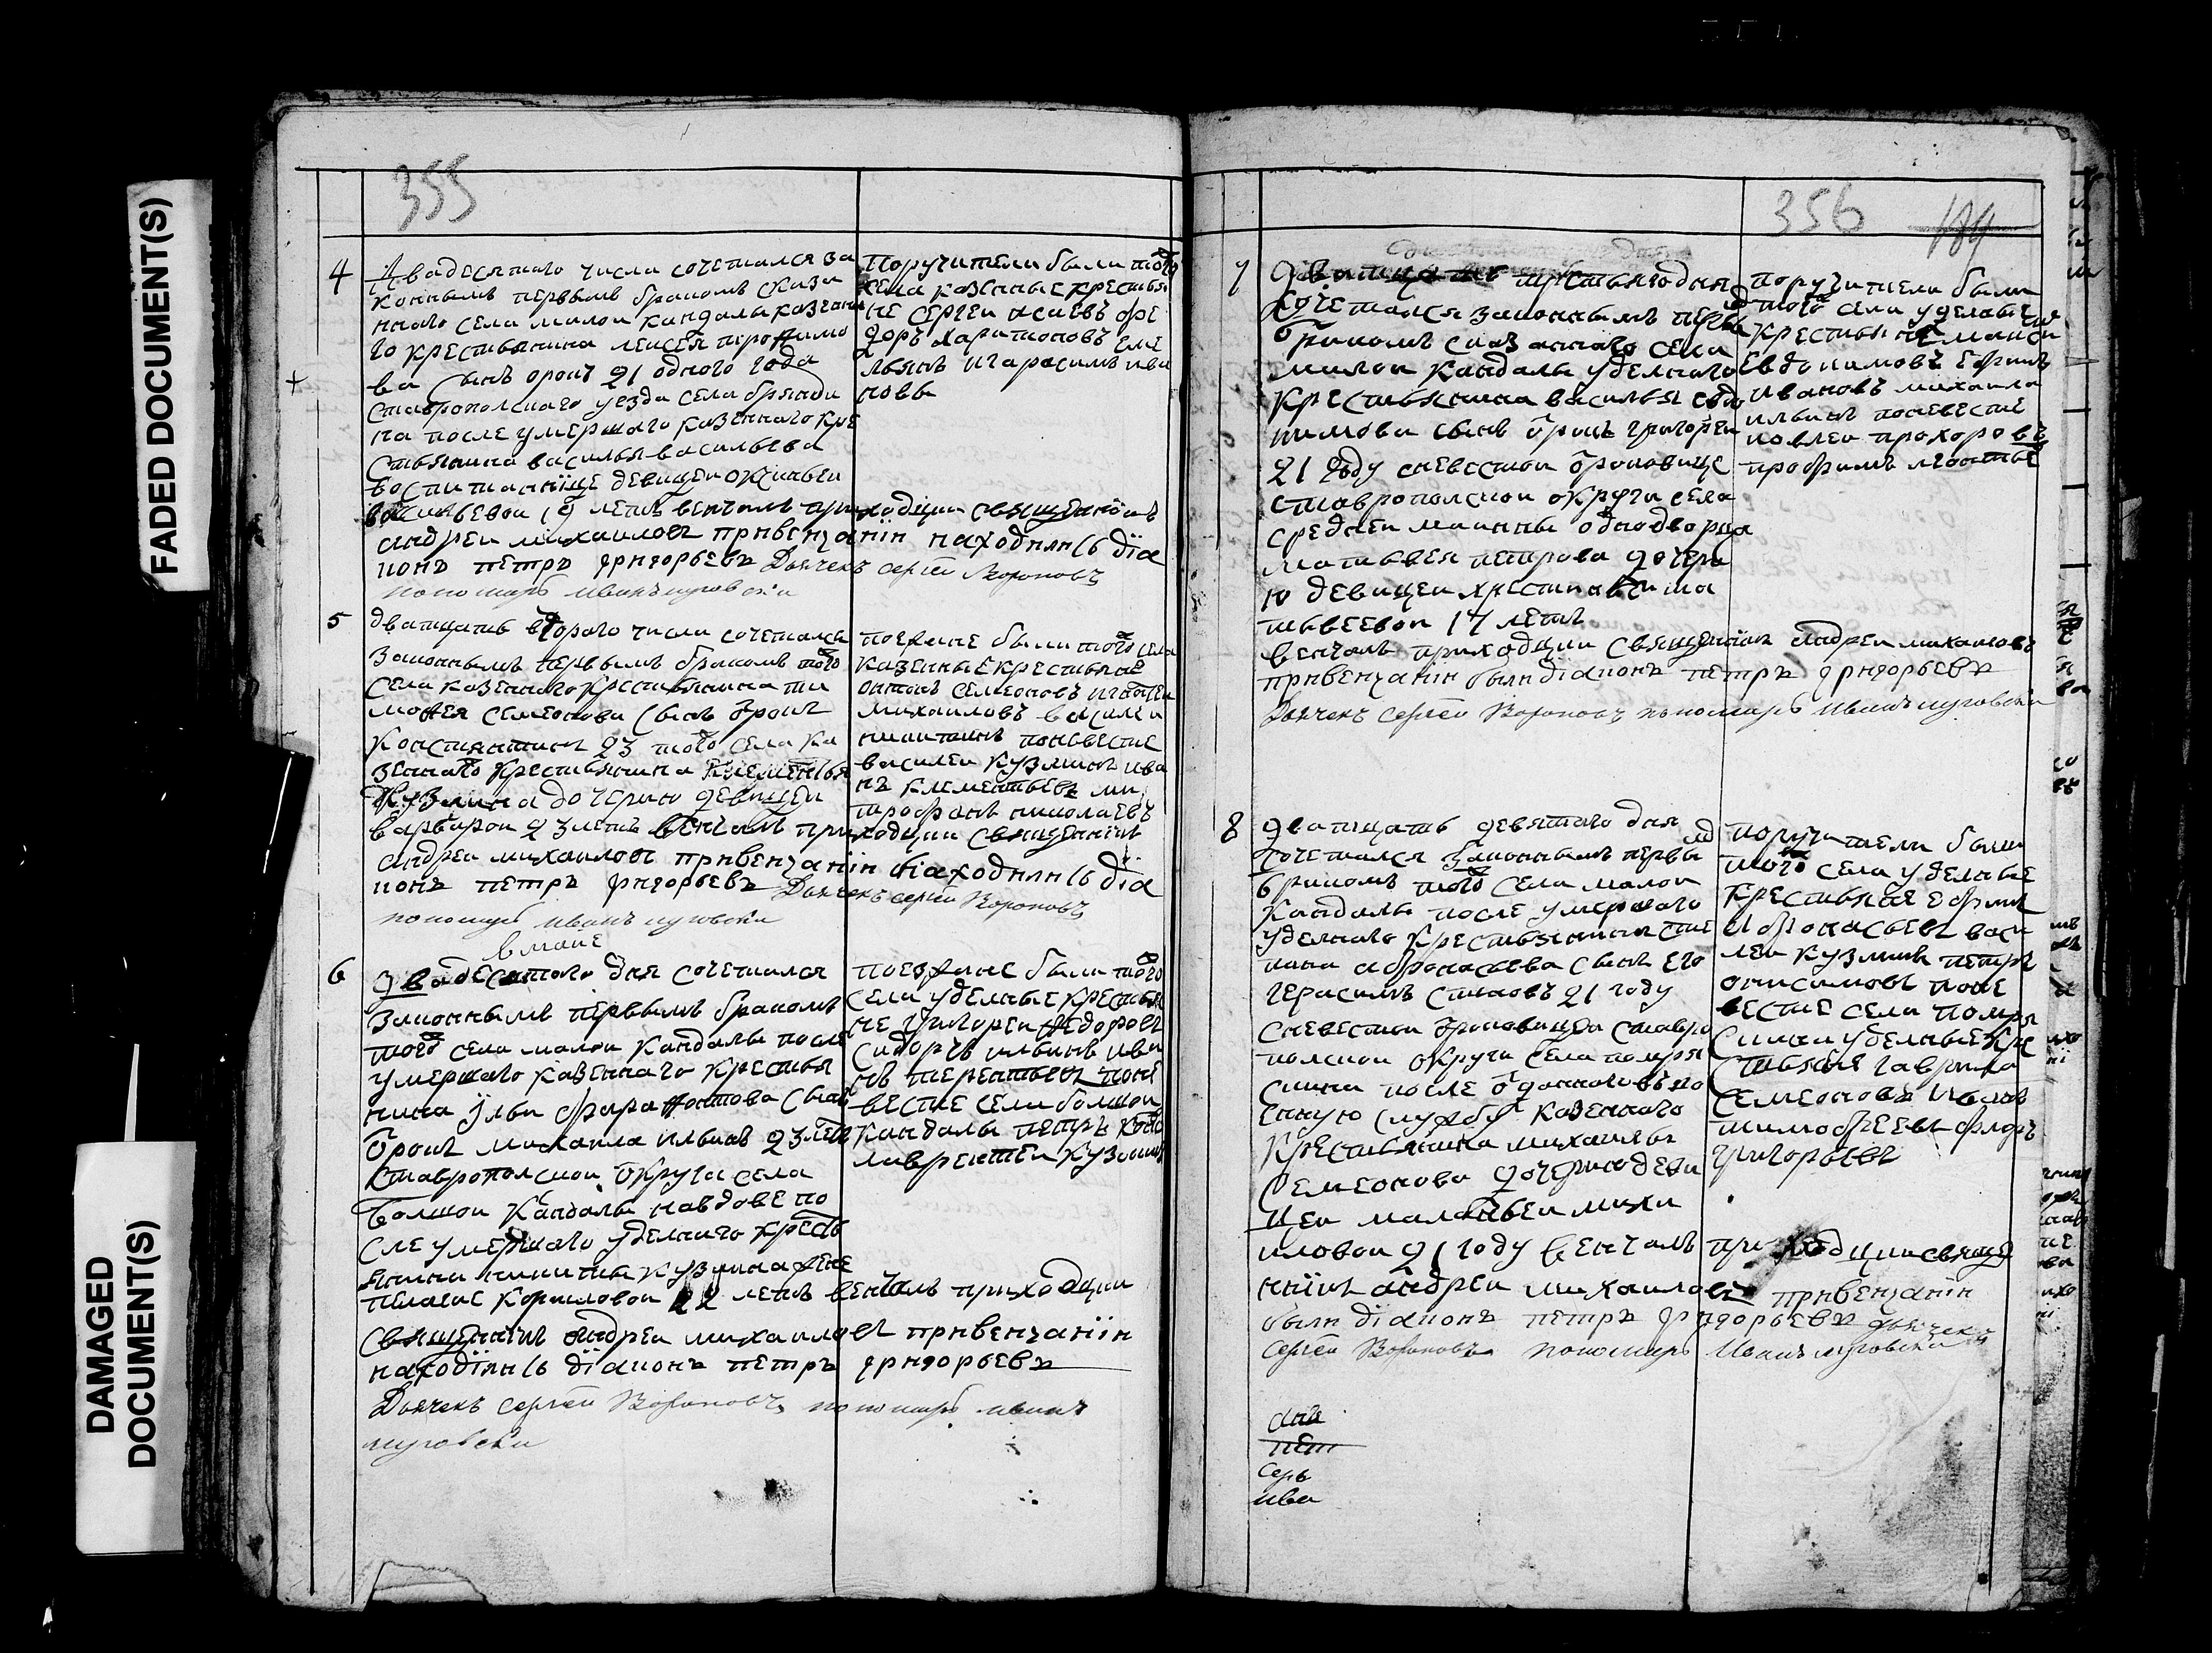 FADED DOCUMENT(S)
DAMAGED
DOCUMENT(S)
355
4
двадесятаго числа сочетался за
коннымъ первымъ бракомъ сказа
ннаго села малои кандалы казенна
го крестьянина
сынъ орокъ 21 одного года
ставрополскаго уезда села брянды
на после умершаго казеннаго кре
стьянина василья васильева
воспитаннице девицеи
васильевои 19 летъ венчалъ приходции священникъ
андреи михаиловъ привенчаніи находились діа
конъ петръ григорьевъ Дьячекъ сергей Вороновъ
пономарь Иванъ
поручители были того
села казенные крестья
не сергеи исаевъ фе
доръ харитоновъ еме
льянъ игарасимъ ива
новы
5
дватцать втораго числа сочетался
законнымъ первымъ бракомъ того
села казеннаго крестьянина ти
мофея семеонова сынъ орокъ
константинъ 23 того села ка
зеннаго крестьянина клементья
кузмина дочерию девицеи
варварои 23 летъ венчалъ приходции священникъ
андреи михаиловъ привенчаніи находились діа
конъ петръ григорьевъ Дьячекъ сергей Вороновъ
пономарь иванъ
поезжане были того села
казенные крестьяне
антонъ семеоновъ
михаиловъ василеи
никитинъ поневесте
василеи кузминъ ива
нъ клементьевъ ми
трофанъ николаевъ
вмаие
6
двадесятаго дня сочетался
законнымъ первымъ бракомъ
того села малои кандалы после
умершаго казеннаго крестья
нина ильи сынъ
орокъ михаила ильинъ 23 летъ
ставрополскои округи села
болшои кандалы навдове по
сле умершаго уделнаго кресть
янина никиты кузмина жене
пелагие кориловои 22 летъ венчалъ приходции
священникъ андреи михаиловъ привенчаніи
находились діаконъ петръ григорьевъ
Дьячекъ сергей Вороновъ пономарь иванъ
поезжане были того
села уделные крестья
не григореи федоровъ
сидоръ ильинъ ива
нъ терентьевъ поне
весте села болшои
кандалы петръ
лаврентеи кузминъ
356
7
третьяго дня
сочетался законнымъ первы
бракомъ сказаннаго села
малои кандалы уделнаго
крестьянина василья евдо
кимова сынъ орокъ григореи
21 году сневестои ороковице
ставрополскои округи села
среднеи однодворца
матьвея петрова дочери
ю девицеи ма
тьвеевои 17 летъ
венчалъ приходции священникъ андреи михаиловъ
привенчаніи были діаконъ петръ григорьевъ
Дьячекъ сергей Вороновъ пономарь иванъ
поручители были
того села уделные
крестьяне
евдокимовъ ефимъ
ивановъ михаила
ильинъ поневесте
иовлеи прохоровъ
8
дватцать девятаго дня
сочетался законнымъ первы
бракомъ того села малои
кандалы после умершаго
уделнаго крестьянина сте
пана афонасьева сынъ его
герасимъ 21 году
сневестои ороковицеи ставро
полскои округи села помря
скина после отданнаго вво
енную службу казеннаго
крестьянина михаилы
семеонова дочерию деви
цеи михаи
иловои 21 году венчалъ приходции священ
никъ андреи михаиловъ привенчаніи
были діаконъ петръ григорьевъ дьячекъ
сергей Вороновъ пономарь Иванъ
поручители были
того села уделные
крестьяне ефимъ
афонасьевъ васи
леи кузминъ петръ
анисимовъ поне
весте села помря
скина уделные кре
стьяне гаврила
семеоновъ
тимофеевъ
григорьевъ
анд
пет
серь
ива